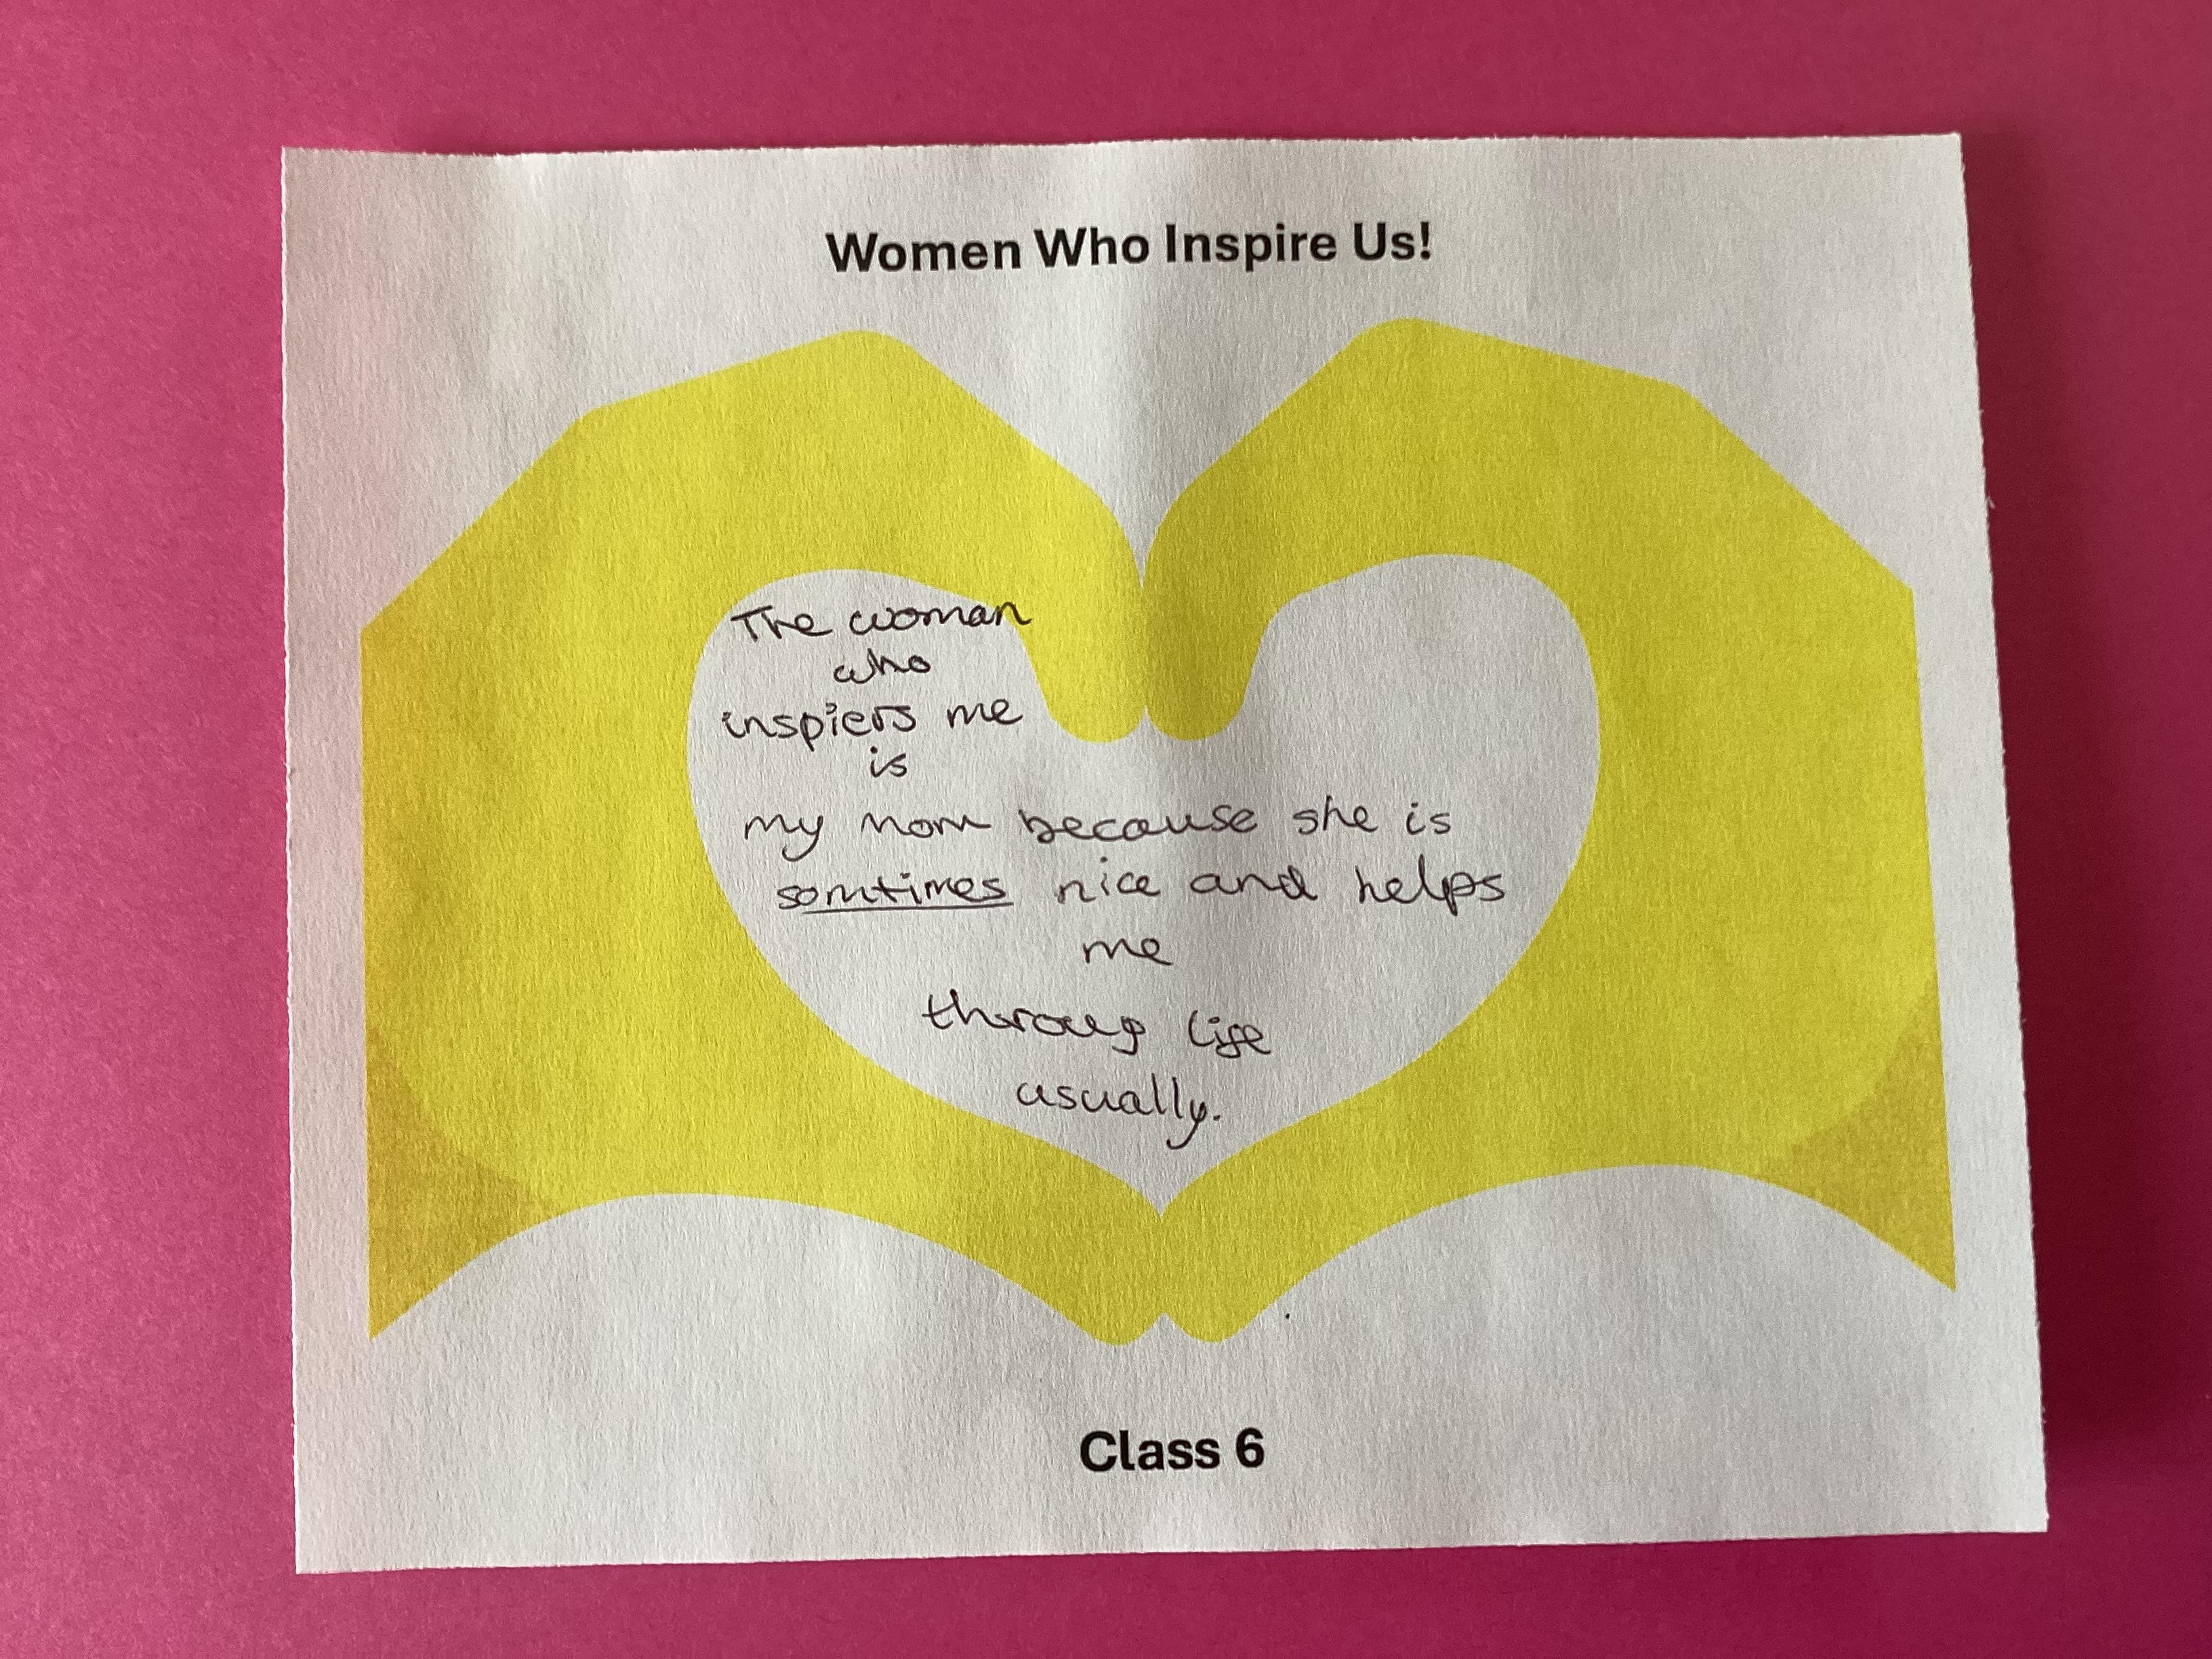 Women Who Inspire Us!
The woman
who
inspiers me
is
my mom because she is
somtimes nice and helps
me
throug life
usually.
Class 6